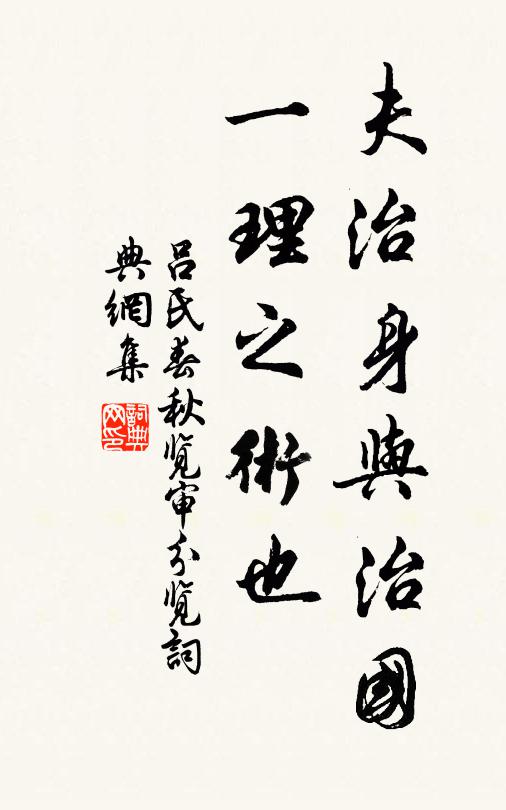 夫治身與治國
一理之術也
呂氏春秋览审分览詞
典網集
詞典
网印